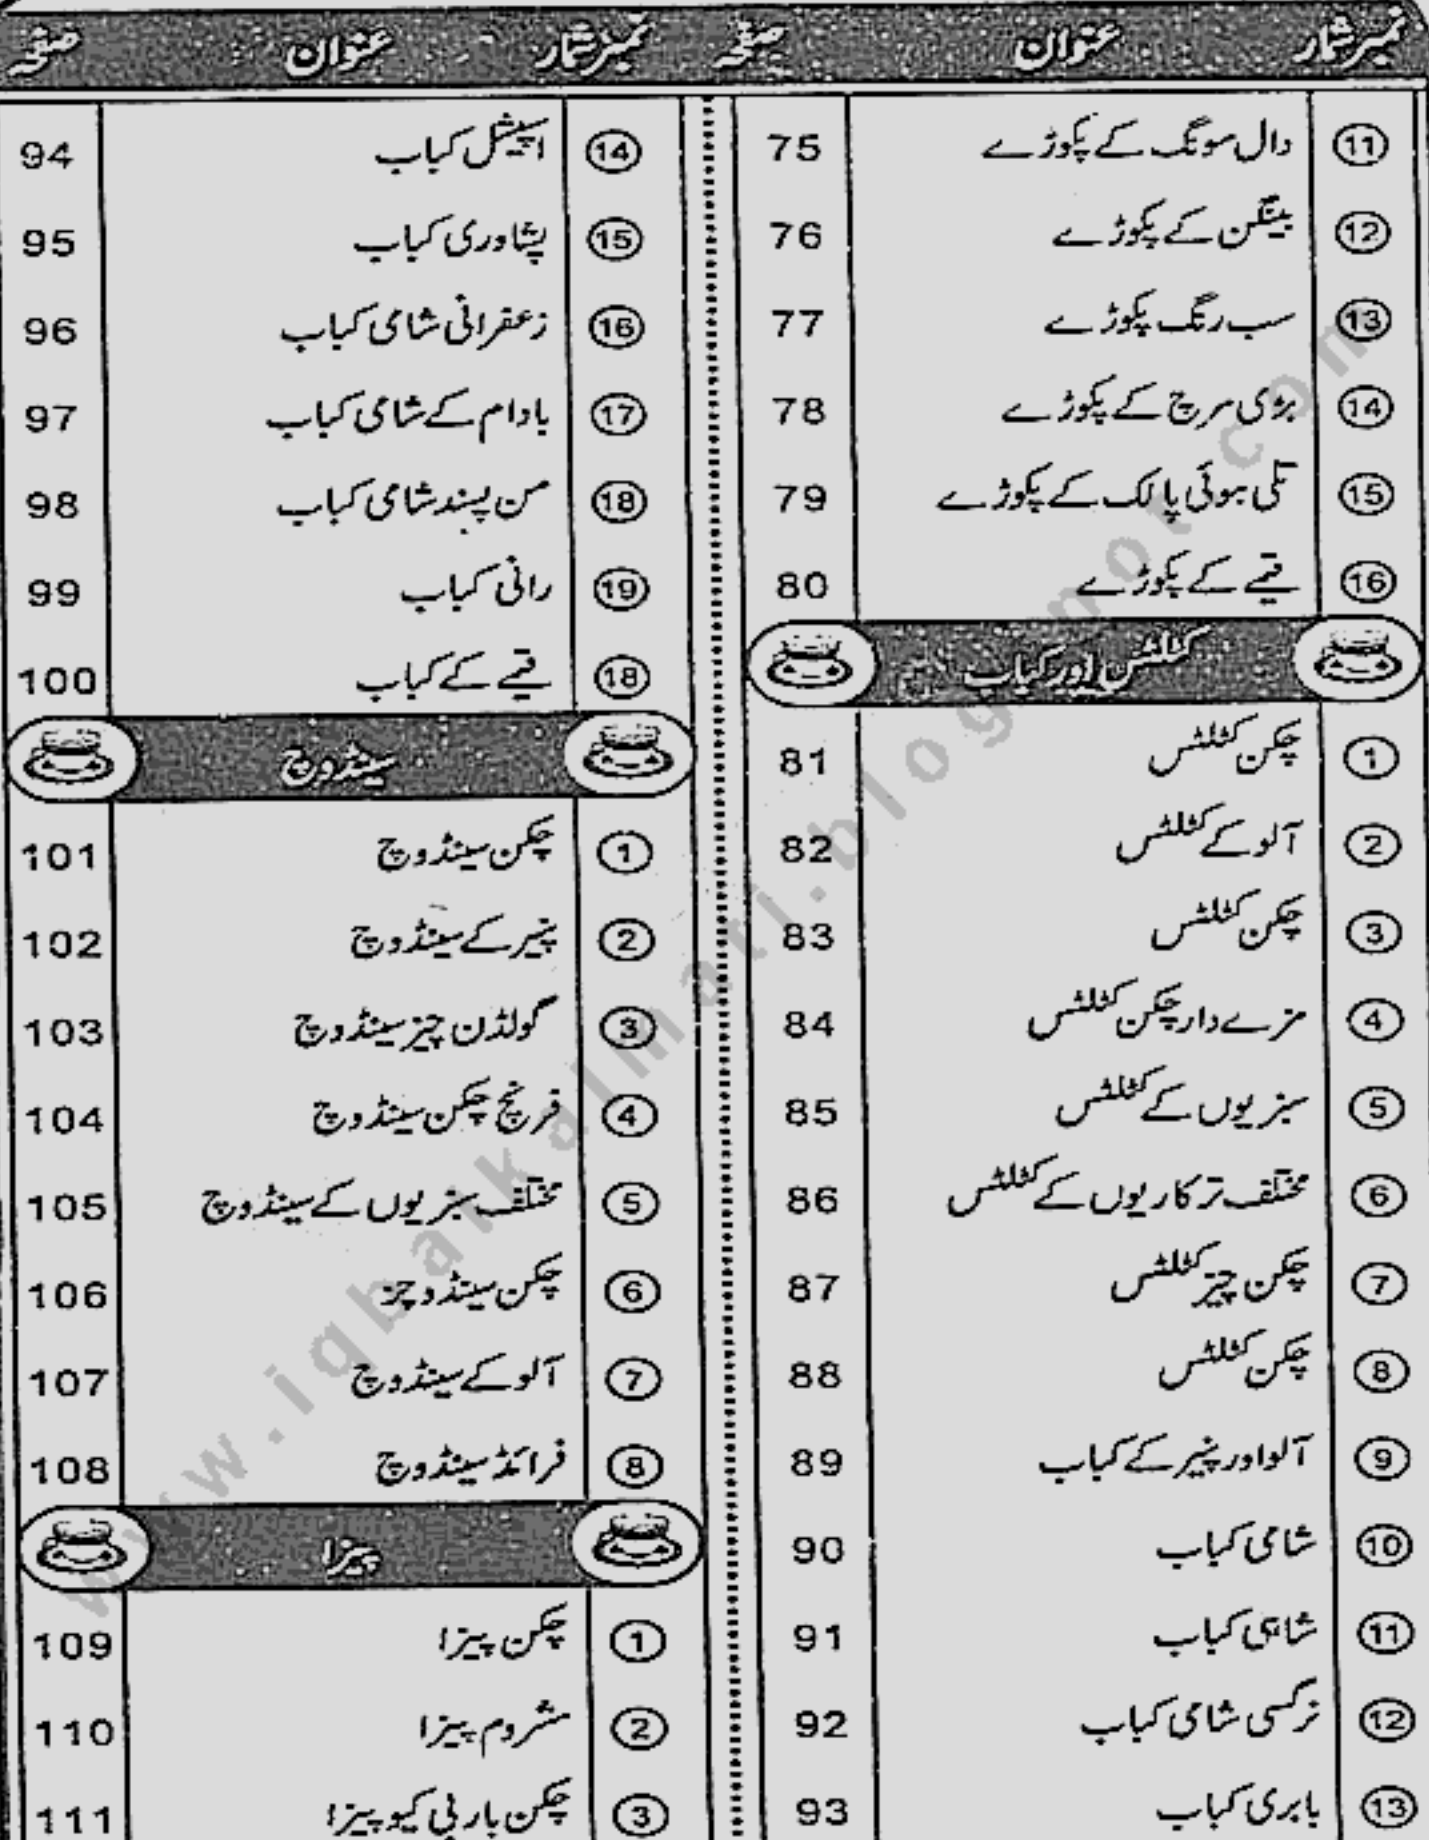 نمبر شمار عنوان صفحہ
11 دال مونگ کے پکوڑے 75
12 بینگن کے پکوڑے 76
13 سب رنگ پکوڑے 77
14 بڑی مرچ کے پکوڑے 78
15 تلی ہوئی پالک کے پکوڑے 79
16 قیمے کے پکوڑے 80
کٹلٹس اور کباب
1 چکن کٹلٹس 81
2 آلو کے کٹلٹس 82
3 چکن کٹلٹس 83
4 مزے دار چکن کٹلٹس 84
5 سبزیوں کے کٹلٹس 85
6 مختلف ترکاریوں کے کٹلٹس 86
7 چکن چیز کٹلٹس 87
8 چکن کٹلٹس 88
9 آلو اور پنیر کے کباب 89
10 شامی کباب 90
11 شاہی کباب 91
12 نرگسی شامی کباب 92
13 بابری کباب 93
نمبر شمار عنوان صفحہ
14 اسپیشل کباب 94
15 پشاوری کباب 95
16 زعفرانی شامی کباب 96
17 بادام کے شامی کباب 97
18 من پسند شامی کباب 98
19 رانی کباب 99
18 قیمے کے کباب 100
سینڈوچ
1 چکن سینڈوچ 101
2 پنیر کے سینڈوچ 102
3 گولڈن چیز سینڈوچ 103
4 فرنچ چکن سینڈوچ 104
5 مختلف سبزیوں کے سینڈوچ 105
6 چکن سینڈوچز 106
7 آلو کے سینڈوچ 107
8 فرائڈ سینڈوچ 108
پیزا
1 چکن پیزا 109
2 مشروم پیزا 110
3 چکن باربی کیو پیزا 111
www.iqbalkalmati.blogspot.com